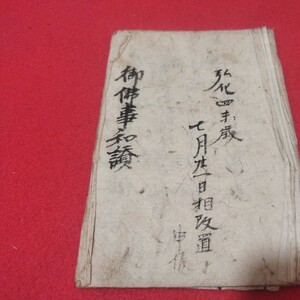 弘化四未歳
七月廿一日相改置
御佛事和讃